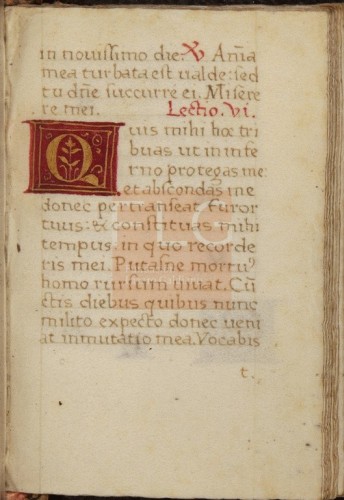 in nouissimo die. ꝟ Añia
mea turbata est ualde: sed
tu dñe succurre ei. Misere
re mei. Lectio. vi.
Quis mihi hoc tri
buas ut in infe
rno protegas me:
et abscondas me
donec pertranseat furor
tuus: & constituas mihi
tempus. in quo recorde
ris mei. Putasne mortuꝰ
homo rursum uiuat. Cũ
ctis diebus quibus nunc
milito expecto donec ueni
at inmutatio mea. Vocabis
t.